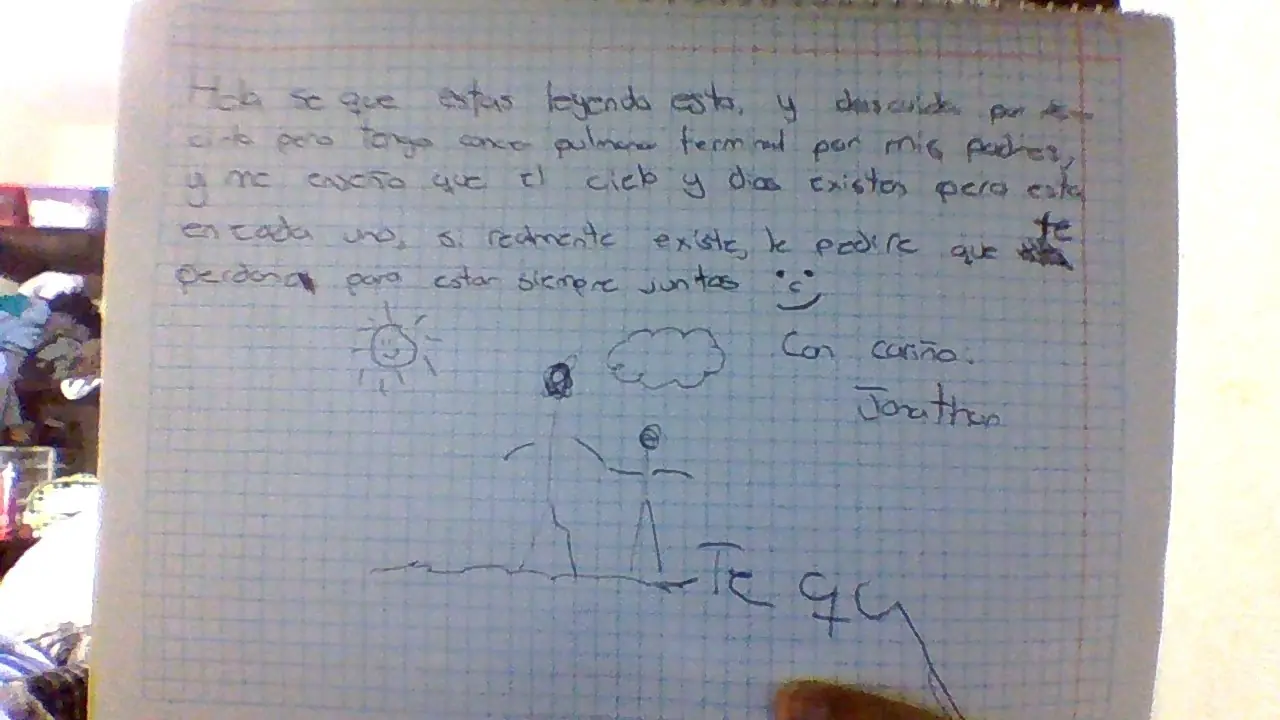 Hola se que estas leyendo esto, y descuida por
pero tengo cancer pulmonar terminal por mis padres,
y me enseño que el cielo y dios existen pero esta
en cada uno, si realmente existe, le pedire que te
perdone para estar siempre juntos
Con cariño.
Jonathan
Te qu